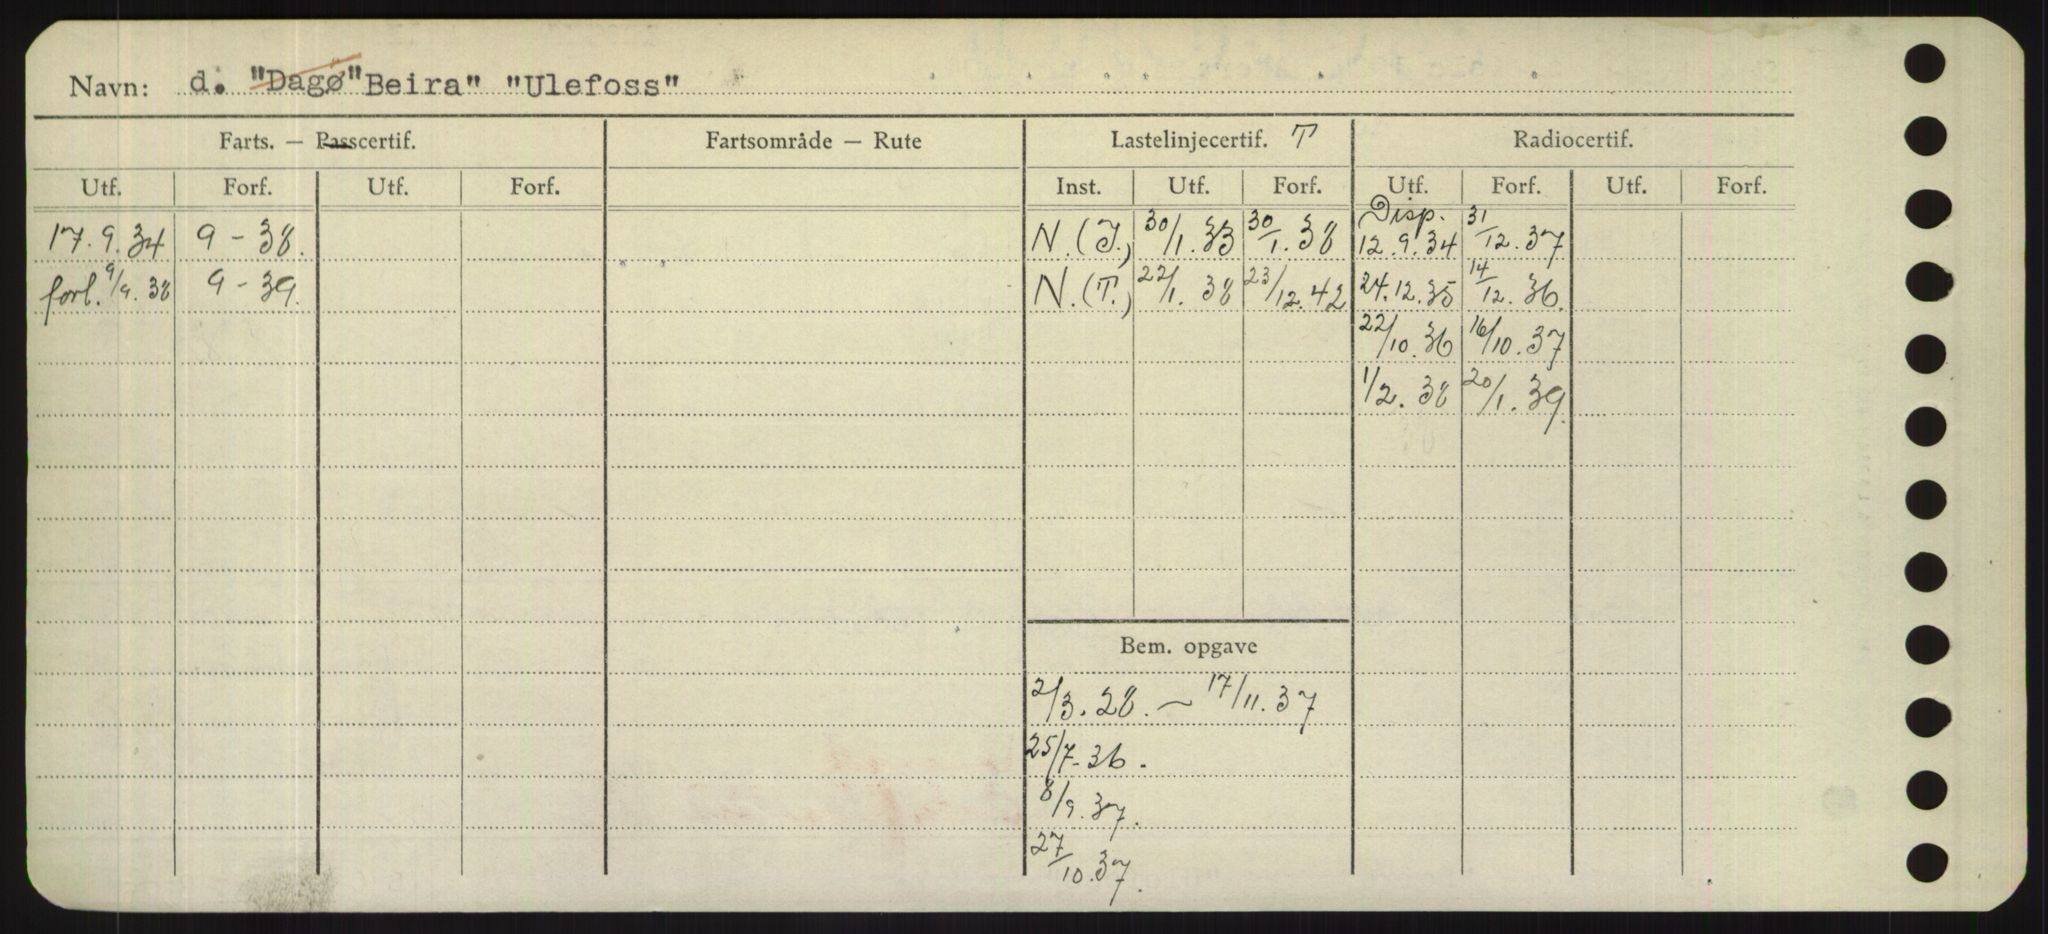 Navn: d. "Dagø" "Beira" "Ulefoss"
Farts. — Passcertif. Fartsområde — Rute Lastelinjecertif. T Radiocertif.
Utf. Forf. Utf. Forf. Inst. Utf. Forf. Utf. Forf. Utf. Forf.
17.9.34 9-38. N.(I.) 30/1.33 30/1.38 Disp. 12.9.34 31/12.37
forl. 9/9.38 9-39. N.(T.) 22/1.38 23/12.42 24.12.35 14/12.36.
22/10.36 16/10.37
1/2.38 20/1.39.
Bem. opgave
2/3.28. ~ 17/11.37
25/7-36.
8/9.37.
27/10.37.